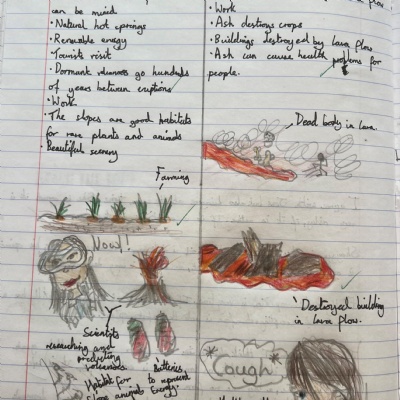 can be mined
·Natural hot springs
·Renewable energy
·Tourists visit
·Dormant volcanoes go hundreds
of years between eruptions
·Work
·The slopes are good habitats
for rare plants and animals
·Beautiful scenery
Farming
Wow!!
Scientists
researching and
predicting
volcanoes.
Habitat for
some animals
Batteries
to represent
Energy
flow.
·Work
·Ash destroys crops
·Buildings destroyed by lava flow
·Ash can cause health problems for
people.
Dead body in lava.
Destroyed building
in lava flow.
*Cough*